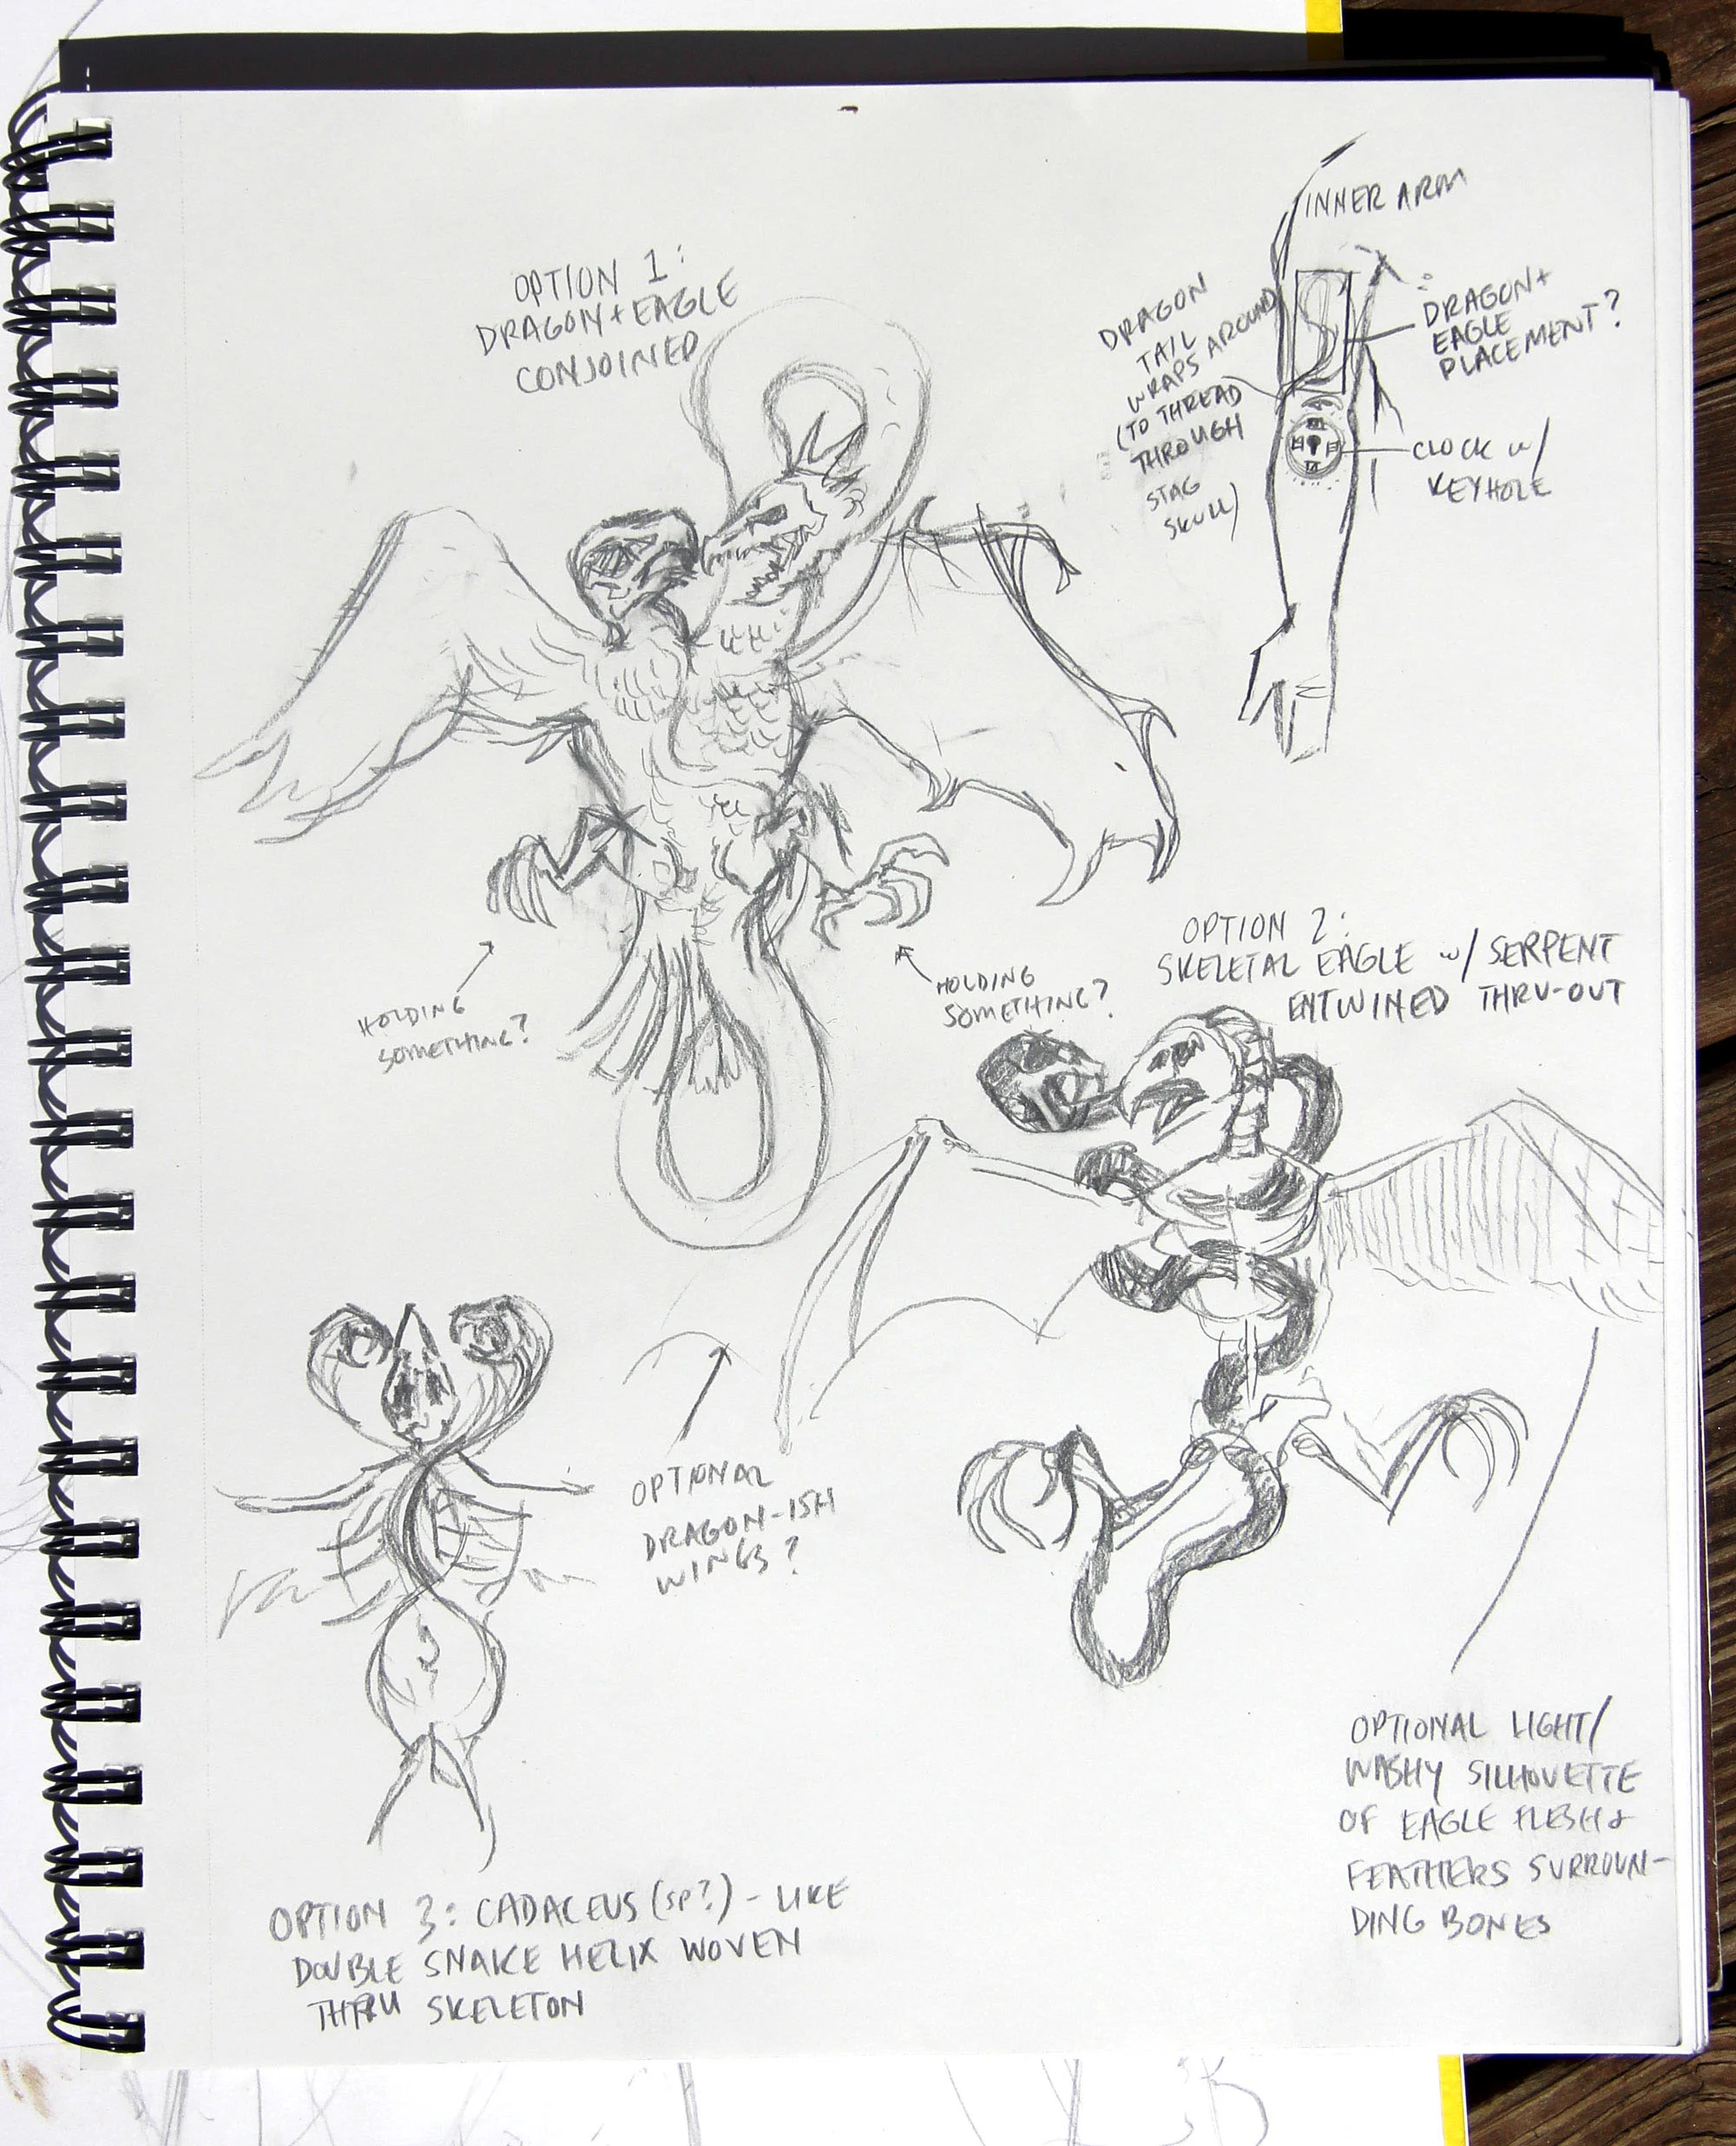 OPTION 1:
DRAGON+EAGLE
CONJOINED
INNER ARM
DRAGON
TAIL
WRAPS AROUND
(TO THREAD
THROUGH
STAG
SKULL)
DRAGON+
EAGLE
PLACEMENT?
CLOCK w/
KEYHOLE
HOLDING
SOMETHING?
HOLDING
SOMETHING?
OPTION 2:
SKELETAL EAGLE w/ SERPENT
ENTWINED THRU-OUT
OPTIONAL
DRAGON-ISH
WINGS?
OPTIONAL LIGHT/
WASHY SILHOUETTE
OF EAGLE FLESH &
FEATHERS SURROUN-
DING BONES
OPTION 3: CADACEUS (SP?) - LIKE
DOUBLE SNAKE HELIX WOVEN
THRU SKELETON